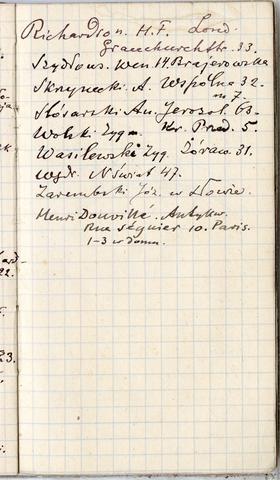 Richardson. H. F. Lond.
Gracechurchstr. 33.
Szydłows. Wen 14 Brajerowska
Skrzynecki. A. Wspólna 32.
m 7.
Ślósarski An. Jerozol. 63.
Wolski Zygm. Kr. Przed. 5.
Wasilewski Zyg. Żóraw. 31.
Wyd. N Świat 47.
Zarembski Józ. w Łowic.
Henri Douvillé. Antykw.
Rue Séguier 10. Paris.
1-3 w domu.
22.
23.